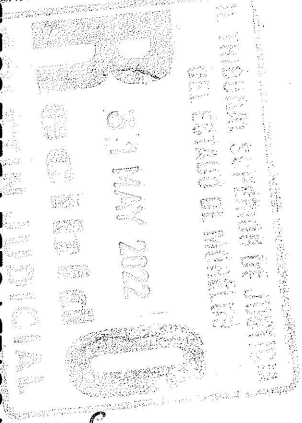 H. TRIBUNAL SUPERIOR DE JUSTICIA
DEL ESTADO DE MORELOS
31 MAY 2022
RECIBIDO
JUDICIAL